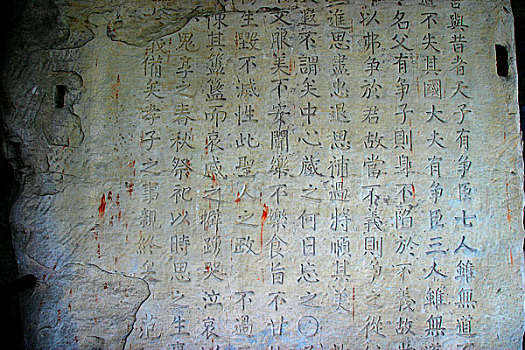 言與昔者天子有爭臣七人雖無道
道不失其國大夫有爭臣三人雖無
名父有爭子則身不陷於不義故
以弗爭於君故當不義則爭之從
進思盡忠退思補過將順其美
遐不謂矣中心藏之何日忘之〇
文服美不安聞樂不樂食旨不甘
生毀不滅性此聖人之政 不過
陳其簠簋而哀慼之擗踊哭泣哀
鬼享之春秋祭祀以時思之生
義備矣孝子之事親終矣 范